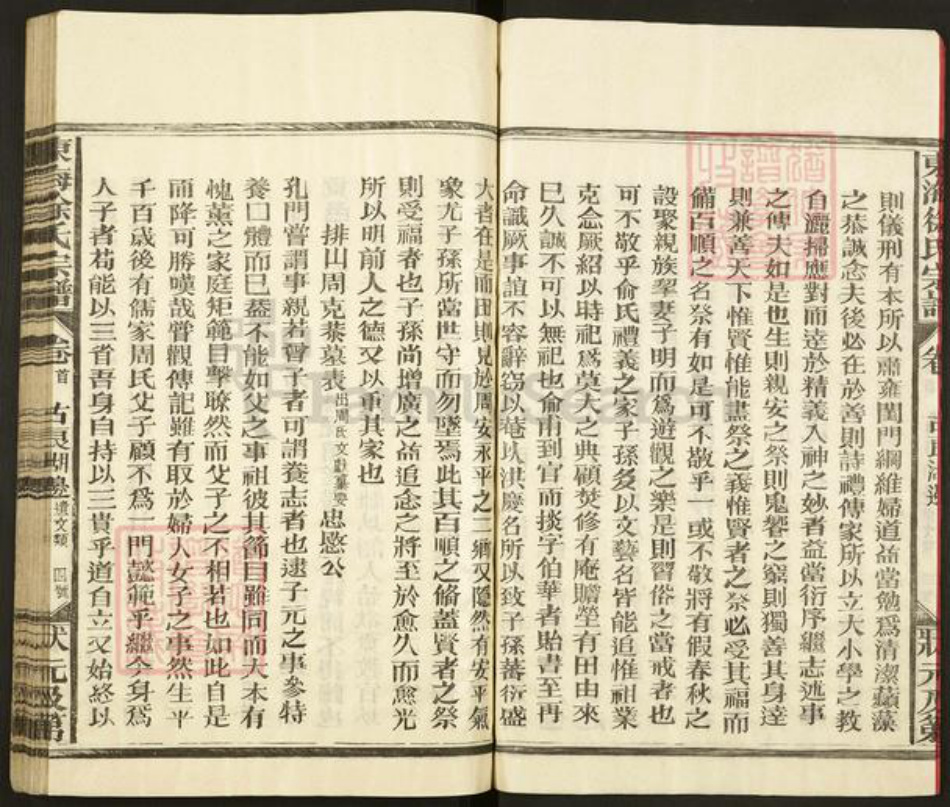 則儀刑有本所以肅雍閨門綱維婦道益當勉爲清潔蘋藻
之恭誠念夫後必在於善則詩禮傳家所以立大小學之教
自灑掃應對而達於精義入神之妙者益當衍序繼志述事
之傳夫如是也生則親安之祭則鬼饗之窮則獨善其身達
則兼善天下惟賢惟能盡祭之義惟賢者之祭必受其福而
備百順之名祭有如是可不敬乎一或不敬將有假春秋之
設聚親族挈妻子明而爲遊觀之樂是則習俗之當戒者也
可不敬乎俞氏禮義之家子孫多以文藝名皆能追惟祖業
克念厥紹以時祀爲莫大之典顧焚修有庵贍塋有田由來
已久誠不可以無祀也俞甫到官而掞字伯華者貽書至再
命識厥事誼不容辭窃以菴以洪慶名所以致子孫蕃衍盛
大者在是而田則見於周安永平之二鄉又隱然有安平氣
象尤子孫所當世守而勿墜焉此其百順之脩蓋賢者之祭
則受福者也子孫尚增廣之益追念之將至於愈久而愈光
所以明前人之德又以重其家也
排山周克恭墓表出周氏文獻彙要 忠愍公
孔門嘗謂事親若曾子者可謂養志者也逮子元之事參特
養口體而已蓋不能如父之事祖彼其節目雖同而大本有
愧薰之家庭矩範目擊瞭然而父子之不相若也如此自是
而降可勝嘆哉嘗觀傳記雖有取於婦人女子之事然生平
千百歲後有儒家周氏父子顧不爲一門懿範乎繼今身爲
人子者苟能以三省吾身自持以三貴乎道自立又始終以
東海徐氏宗譜 卷首 古良湖邊 遺文類 四號 狀元及第